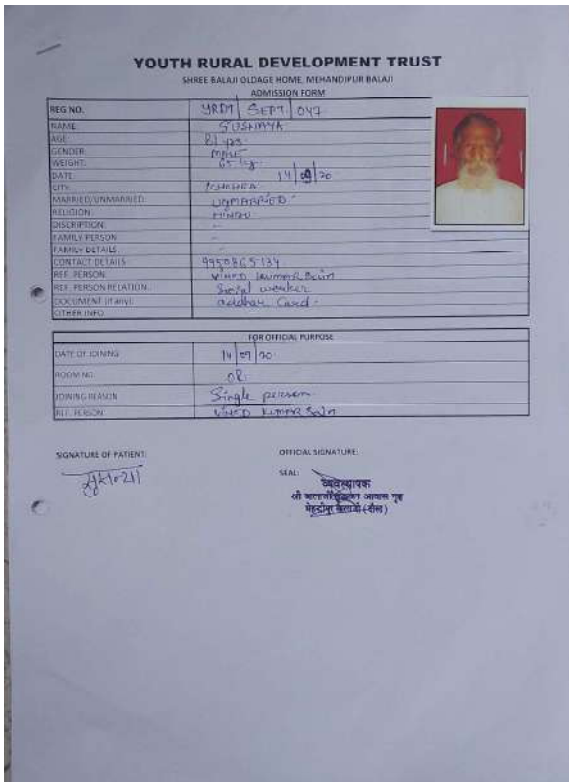 YOUTH RURAL DEVELOPMENT TRUST
SHREE BALAJI OLDAGE HOME, MEHANDIPUR BALAJI
ADMISSION FORM
REG NO. YRDT/SEPT/047
NAME
AGE 81 yrs.
GENDER: MALE
WEIGHT: 65 kg
DATE: 14/09/20
CITY:
MARRIED/UNMARRIED: UNMARRIED
RELIGION: HINDU
DISCRIPTION: -
FAMILY PERSON -
FAMILY DETAILS -
CONTACT DETAILS
REF. PERSON: KUMAR
REF. PERSON RELATION: Social worker
DOCUMENT (if any): addhar Card
OTHER INFO
FOR OFFICIAL PURPOSE
DATE OF JOINING 14/09/20
ROOM NO. 02
JOINING REASON Single person
REF. PERSON KUMAR
SIGNATURE OF PATIENT:
OFFICIAL SIGNATURE:
SEAL:
व्यवस्थापक
श्री आवास गृह
मेहन्दीपुर बालाजी (दौसा)